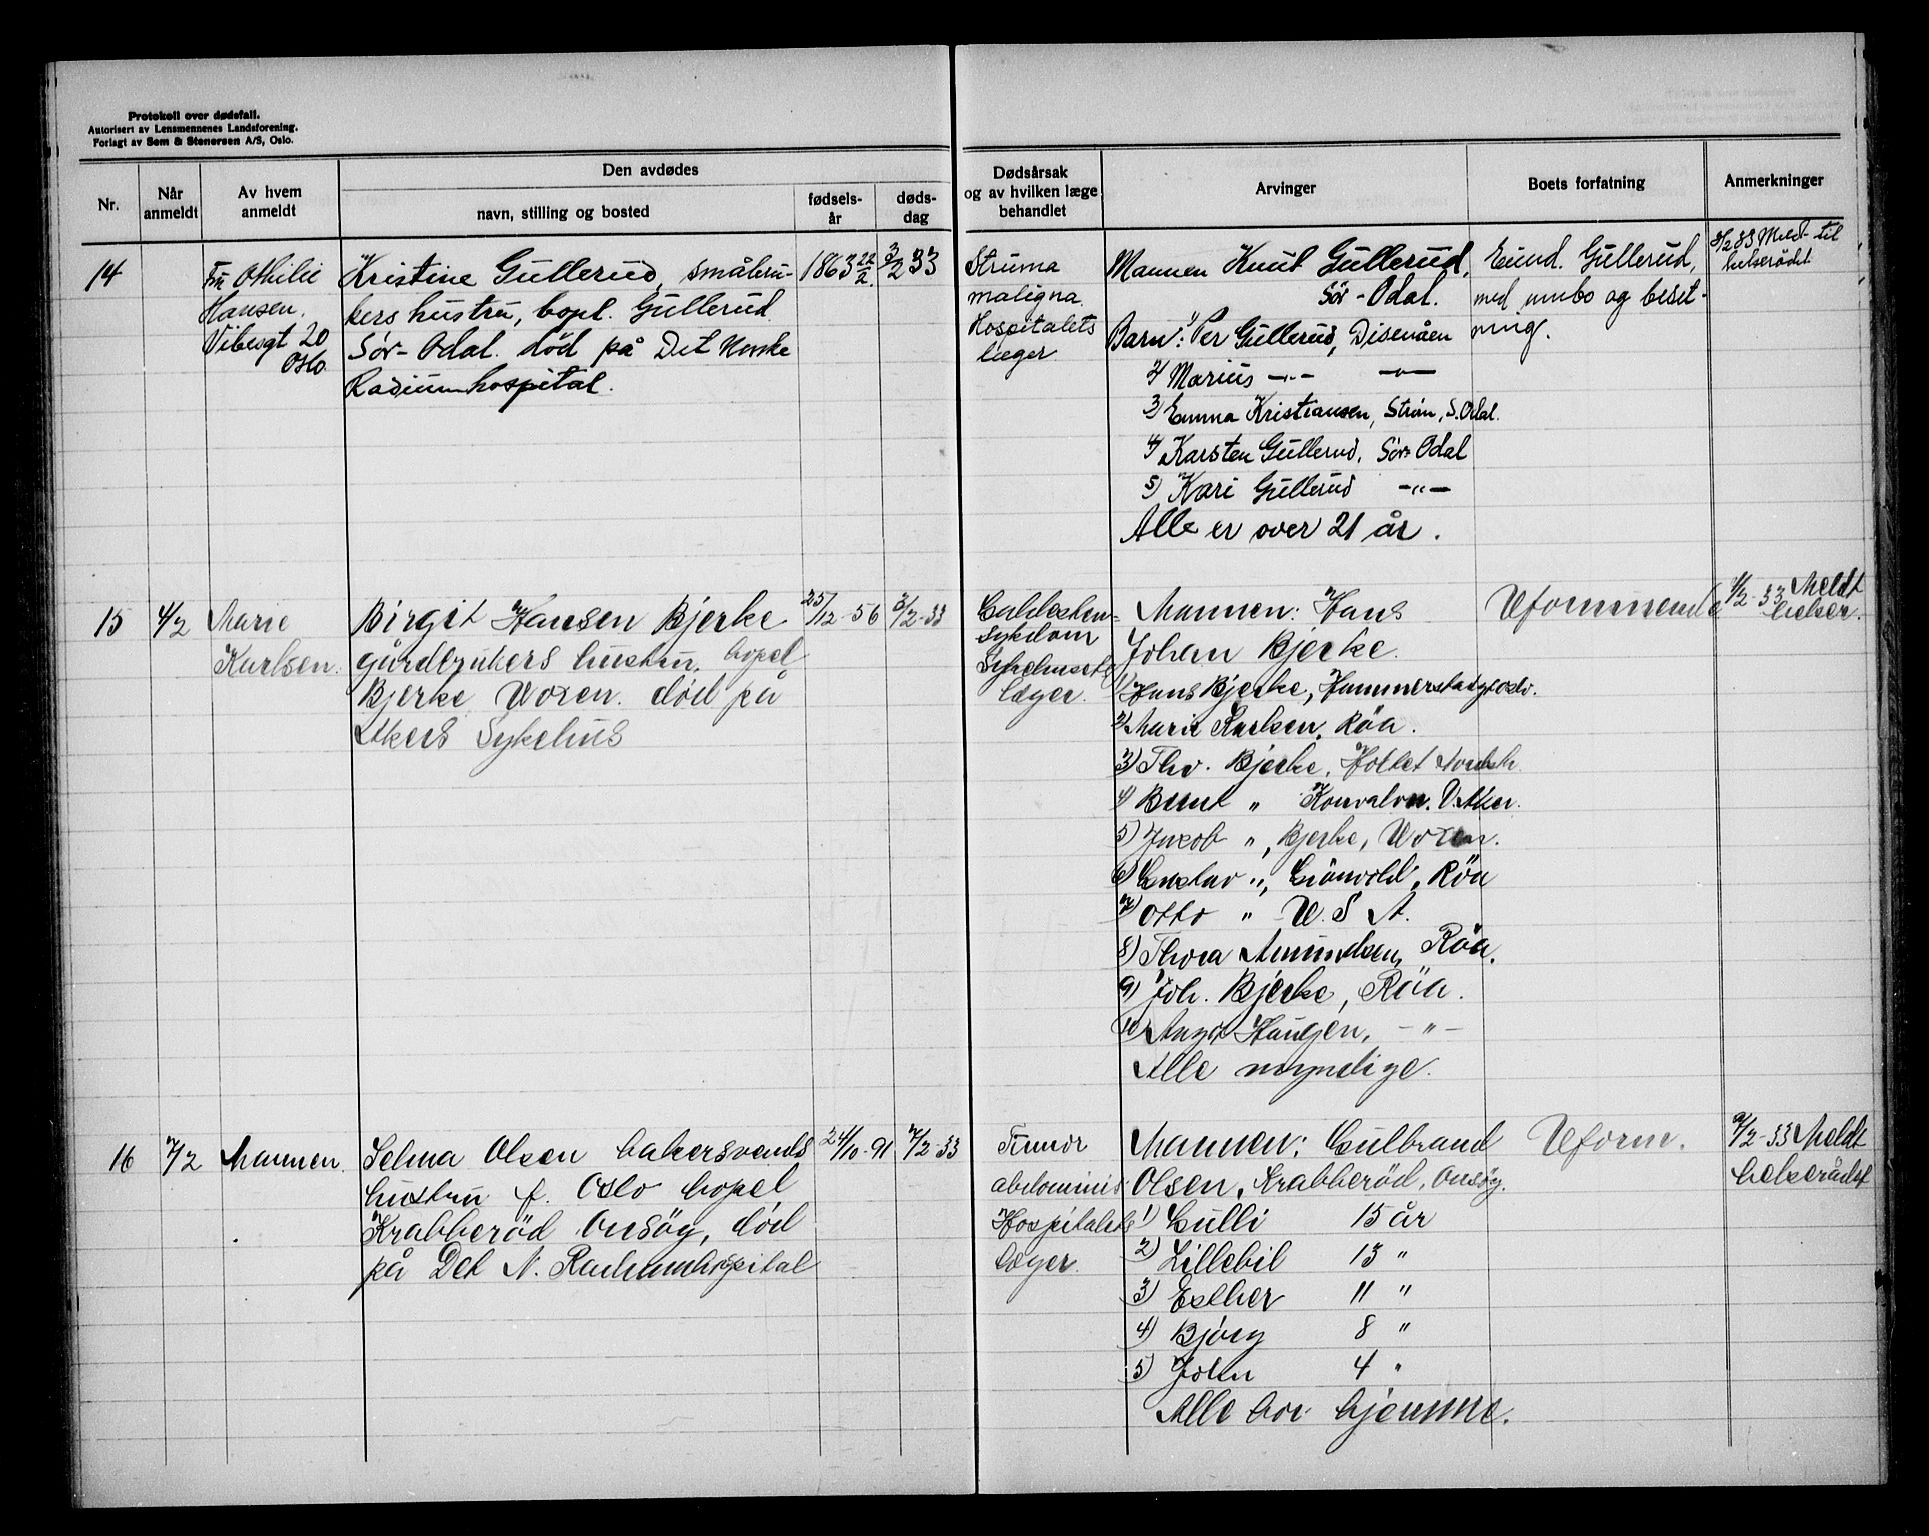 Protokoll over dødsfall.
Autorisert av Lensmennenes Landsforening.
Forlagt av Sem & Stenersen A/S, Oslo.
Nr.
Når anmeldt
Av hvem anmeldt
Den avdødes
navn, stilling og bosted
fødsels-år
døds-dag
Dødsårsak
og av hvilken læge
behandlet
Arvinger
Boets forfatning
Anmerkninger
14
Fru Othilie
Hansen.
Vibesgt 20
Oslo
Kristine Gullerud, småbru-
kers hustru, bopl. Gullerud
Sør-Odal. død på Det Norske
Radiumhospital.
1863 22/2.
3/2 33
Struma
maligna.
Hospitalets
læger
Mannen Knut Gullerud,
Sør-Odal.
Barn: 1) Per Gullerud, Disenåen
2) Marius —"— —"—
3) Emma Kristiansen, Strøm, S. Odal.
4) Karsten Gullerud, Sør-Odal
5) Kari Gullerud —"—
Alle er over 21 år.
Eiend. Gullerud,
med innbo og beset-
ning.
8/2 33 Meldt til
helserådet
15
4/2
Marie
Karlsen.
Birgit Hansen Bjerke
gårdbrukers hustru. bopel
Bjerke Voxen. død på
Akers Sykehus
25/12-56
3/2-33
Galdesten-
sykdom
Sykehusets
læger.
Mannen: Hans
Johan Bjerke.
1) Hans Bjerke, Hammerstadgt Oslo.
2) Marie Karlsen, Røa.
3) Thv. Bjerke, Holtet Nordstr.
4) Bernt " Konvalvn. V. Aker.
5) Jacob ", Bjerke, Voxen.
6) Gustav ", Grönvold, Röa
7) Otto " U.S.A.
8) Thora Amundsen, Röa.
9) Joh. Bjerke, Röa.
10) Haugen, —"—
Alle myndige.
Uformuende
4/2-33 Meldt
helser.
16
7/2
Mannen
Selma Olsen bakersvends
hustru f. Oslo bopel
Krabberød Onsøy, død
på Det N. Radiumhospital
24/10-91
7/2-33
Tumor
abdominis
Hospitalets
læger.
Mannen: Gulbrand
Olsen, Krabberød, Onsøy.
1) Gulli 15 år
2) Lillebil 13 "
3) Esther 11 "
4) Bjørg 8 "
5) John 4 "
Alle bor hjemme.
Uform.
9/2-33 Meldt
helserådet